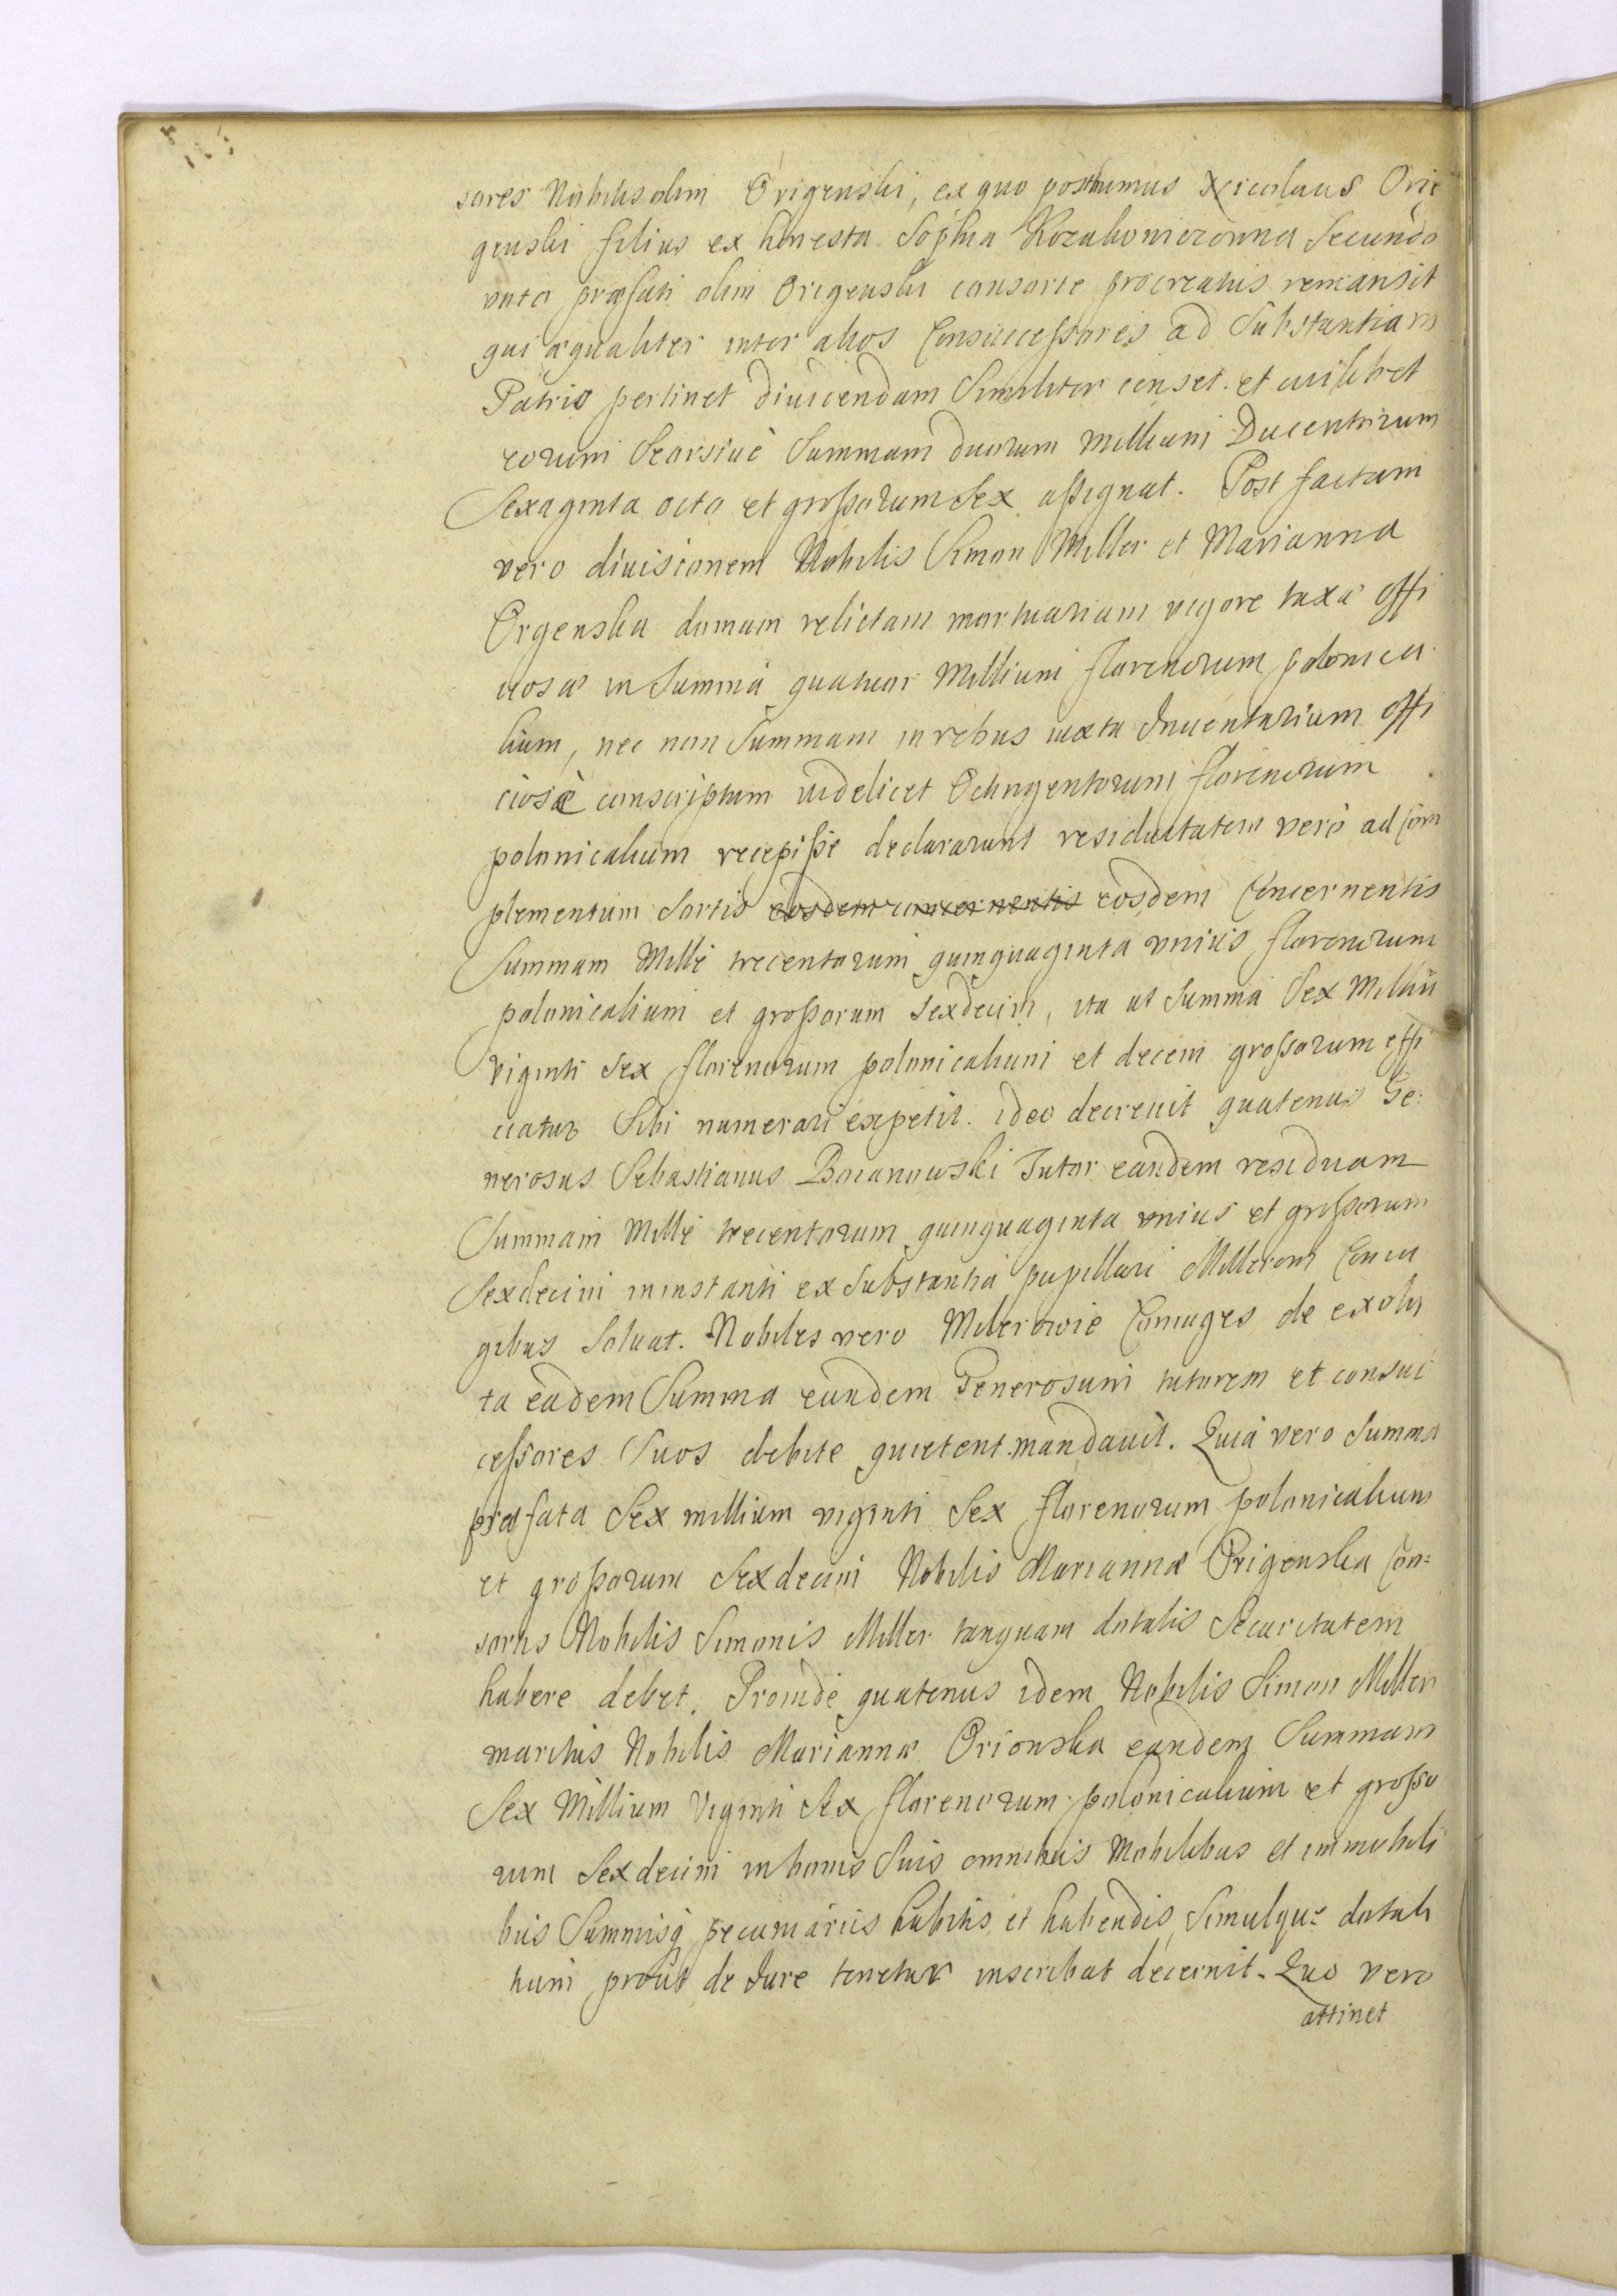 sores Nobilis olim Origenski, ex quo posthumus Nicolaus Ori
genski filius ex honesta Sophia Kozakowiczowna Secundo
voto præfati olim Origenski consorte procreatus remansit
qui æqualiter inter alios Consuccessores ad Substantiam
Patris pertinet diuidendam Similiter censet. et cuilibet
eorum Seorsiue Summam duorum millium Ducentorum
Sexaginta octo et grossorum Sex assignat. Post factam
vero diuisionem Nobilis Simon Miller et Marianna
Orgenska domum relictam mortuariam vigore taxæ offi
ciosæ in Summa quatuor Millium florenorum polonica
lium, nec non Summam in rebus iuxta Inuentarium offi
ciose conscriptum videlicet Octingentorum florenorum
polonicalium recepisse declararunt residuitatem vero ad Com
plementum Sortis eosdem concernentis eosdem Concernentis
Summam Mille trecentorum quinquaginta vnius florenorum
polonicalium et grossorum Sexdecim, ita ut Summa Sex Milliu
viginti Sex florenorum polonicalium et decem grossorum effi
ciatur Sibi numerari expetit. ideo decreuit quatenus Ge:
nerosus Sebastianus Boianowski Tutor eandem residuam
Summam Mille trecentorum quinquaginta vnius et grossorum
Sexdecim in instanti ex Substantia pupillari Millerom Coniu
gibus Soluat. Nobiles vero Milerowie Coniuges de exolu
ta eadem Summa eundem Generosum tutorem et consuc
cessores Suos debite quietent mandauit. Quia vero Summa
præfata Sex millium viginti Sex florenorum polonicalium
et grossorum Sexdecim Nobilis Mariannæ Origenska Con=
sortis Nobilis Simonis Miller tanquam dotalis Securitatem
habere debet. Proinde quatenus idem Nobilis Simon Miller
maritus Nobilis Mariannæ Orionska eandem Summam
Sex Millium Viginti Sex florenorum polonicalium et grosso
rum Sexdecim in bonis Suis omnibus Mobilibus et immobili
bus Summisq pecuniariis habitis et habendis, Simulque dotali
tium prout de Jure tenetur inscribat decernit. Quo vero
attinet